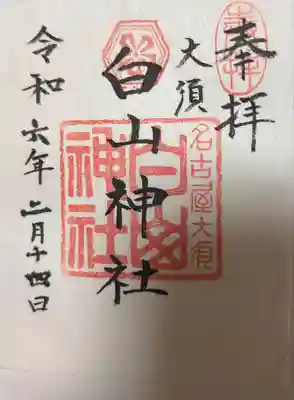 奉拝
大須
白山神社
名古屋大須
白山
神社
令和六年二月十四日